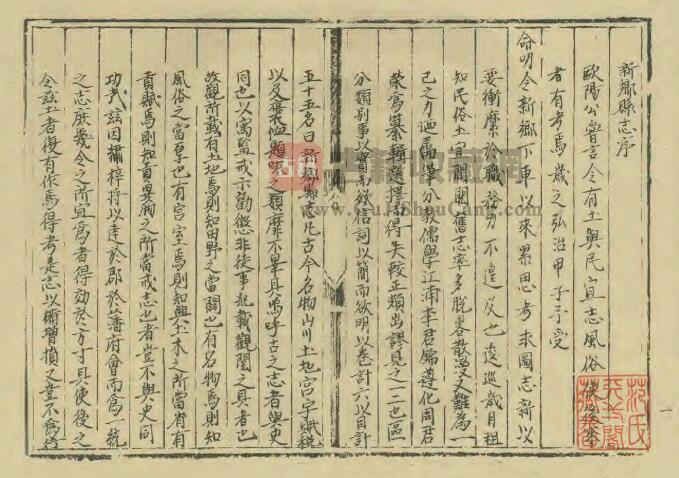 新鄉縣志序
歐陽公嘗言令有土與民宜志風俗使後來
者有考焉歲之弘治甲子予受
命明令新鄉下車以來累思考求圖志新以
要衝縻於職務力不遑及也逡巡歲月粗
知民俗土宜間閱舊志率多脫畧散漫又難為一
己之力迺屬筆分教儒學江浦李君錦遵化周君
榮為纂輯選擇而得失較正類出謬見之一二也區
分類別事以實而欲信詞以簡而欲明以卷計六以目計
五十五名曰新鄉縣志凡古今名物山川土地宮室賦稅
以及題咏之類靡不畢具焉呼古之志者與史
同也以寓監戒示勸懲非徒事紀載觀聞之具者也
故觀所載有土地焉則知田野之當闢也有名物焉則知
風俗之當厚也有宮室焉則知興土木之所當有
貢賦焉則知貢之所當戒志也者豈不與史同
功哉茲因繡梓將以達於郡於藩府會而為一統
之志庶幾令之所宜為者得効於方寸具使後之
令茲土者復有作焉得考是志以增損又豈不為
范氏天一閣
古籍收藏網
www.GuJiShouCang.com
一